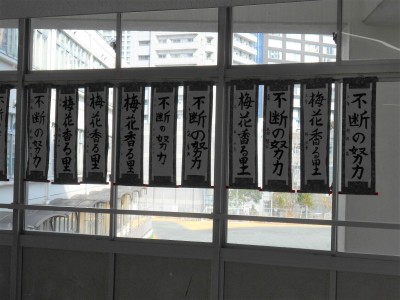 不断の努力
梅花香る里
梅花香る里
梅花香る里
不断の努力
不断の努力
梅花香る里
不断の努力
梅花香る里
不断の努力